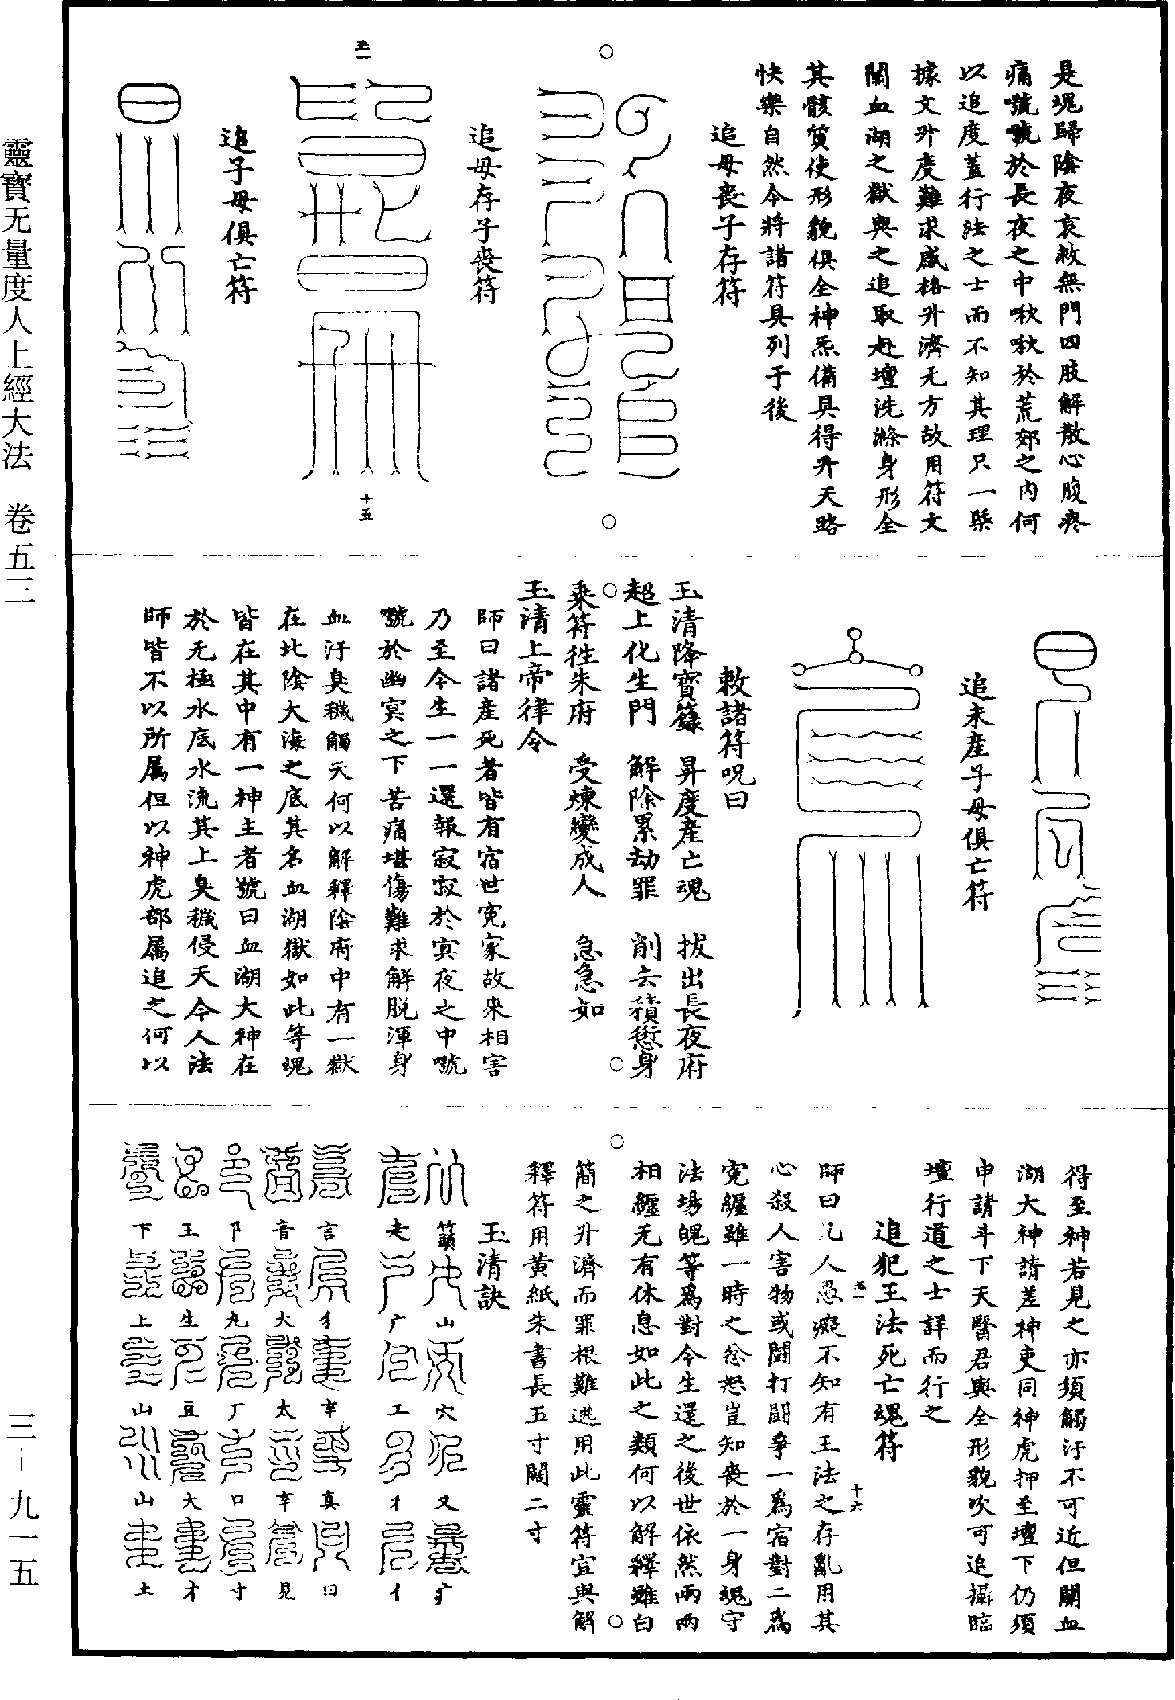 是魂歸陰夜哀救無門四肢解散心腹疼
痛號號於長夜之中啾啾於荒郊之內何
以追度蓋行法之士而不知其理只一槩
據文升度難求感格升濟无方故用符文
關血湖之獄與之追取赴壇洗滌身形全
其骸質使形貌俱全神炁備具得升天路
快樂自然今將諸符具列于後
追母喪子存符
追母存子喪符
十五
追子母俱亡符
追未產子母俱亡符
敕諸符呪曰
玉清降寶籙 昇度產亡魂 拔出長夜府
超上化生門 解除累劫罪 削去積愆身
乘符徃朱府 受煉變成人 急急如
玉清上帝律令
師曰諸產死者皆有宿世冤家故來相害
乃至今生一一還報寂寂於㝠夜之中號
號於幽㝠之下苦痛堪傷難求解脱渾身
血汙臭穢觸天何以解釋陰府中有一獄
在北陰大海之底其名血湖獄如此等魂
皆在其中有一神主者號曰血湖大神在
於无極水底水流其上臭穢侵天今人法
師皆不以所属但以神虎部属追之何以
得至神若見之亦須觸汙不可近但關血
湖大神請差神吏同神虎押至壇下仍須
申請斗下天醫君與全形貌吹可追攝臨
壇行道之士詳而行之
追犯王法死亡魂符
十六
師曰凡人愚癡不知有王法之存亂用其
心殺人害物或鬬打鬬爭一爲宿對二爲
冤纒雖一時之忿怒豈知喪於一身魂守
法場魄等爲對今生還之後世依然兩兩
相纒无有休息如此之類何以解釋雖白
簡之升濟而罪根難逃用此靈符宜與解
釋符用黃紙朱書長五寸闊二寸
玉清訣
籲 山 穴 又 疒
老 广 工 才 亻
言 彳 辛 真 日
音 大 太 辛 見
阝 九 厂 口 寸
王 生 豆 大 才
下 上 山 山 土
靈寶无量度人上經大法 卷五三
三－九一五